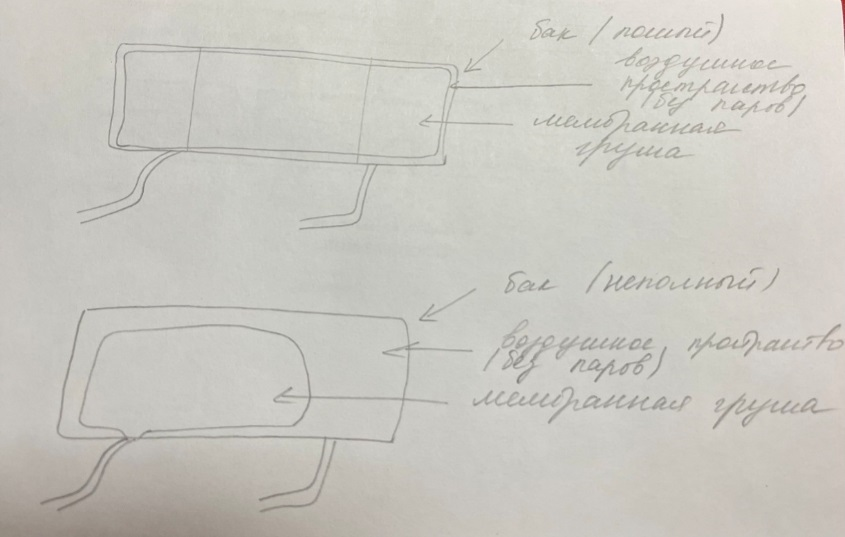 бак (полный)
воздушное
пространство
(без паров)
мембранная
груша
бак (неполный)
воздушное пространство
(без паров)
мембранная груша